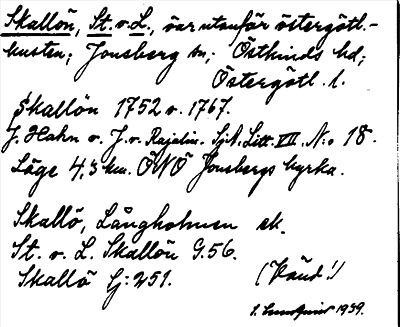 Skallön, St. o. L., öar utanför östergötl.-
kusten; Jonsberg sn; Östkinds hd;
Östergötl. l.
Skallön 1752 o. 1767.
J. Hahn o. J. v. Rajalin. Sjk. Litt. VII. No 18.
Läge 4,3 km. ÖNÖ Jonsbergs kyrka.
Skallö, Långholmen ek.
St. o. L. Skallön G.56.
Skallö Ej: 251.
(Vänd!)
1939.